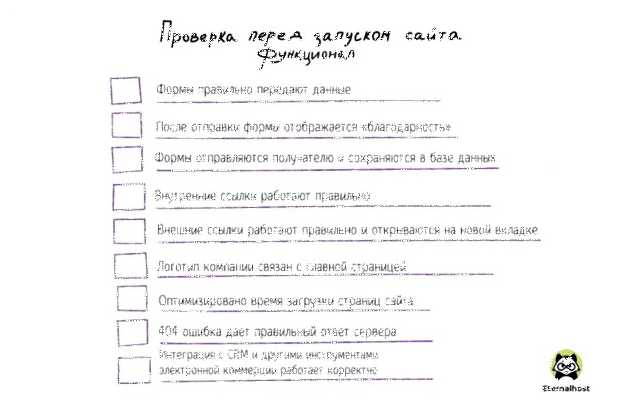 Проверка перед запуском сайта.
Функционал
Формы правильно передают данные
После отправки формы отображается «благодарность»
Формы отправляются получателю и сохраняются в базе данных
Внутренние ссылки работают правильно
Внешние ссылки работают правильно и открываются на новой вкладке
Логотип компании связан с главной страницей
Оптимизировано время загрузки страниц сайта
404 ошибка дает правильный ответ сервера
Интеграция с CRM и другими инструментами
электронной коммерции работает корректно
Eternalhost